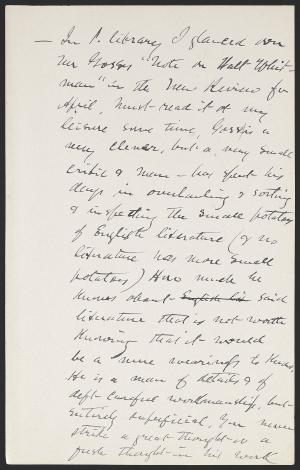 — In P. library I glanced over
Mr Gosse's "Note on Walt Whit-
man" in the New Review for
April, must read it at my
leisure some time, Gosse is a
very clever, but a very small
critic & man – has spent his
days in overhauling & sorting
& inspecting the small potatoes
of English literature (& no
literature has more small
potatoes) How much he
knows about English lit said
literature that is not worth
knowing that it would
be a mere weariness to know.
He is a man of details & of
deft careful workmanship, but
entirely superficial, You never
strike a great thought or a
fresh thought in his work